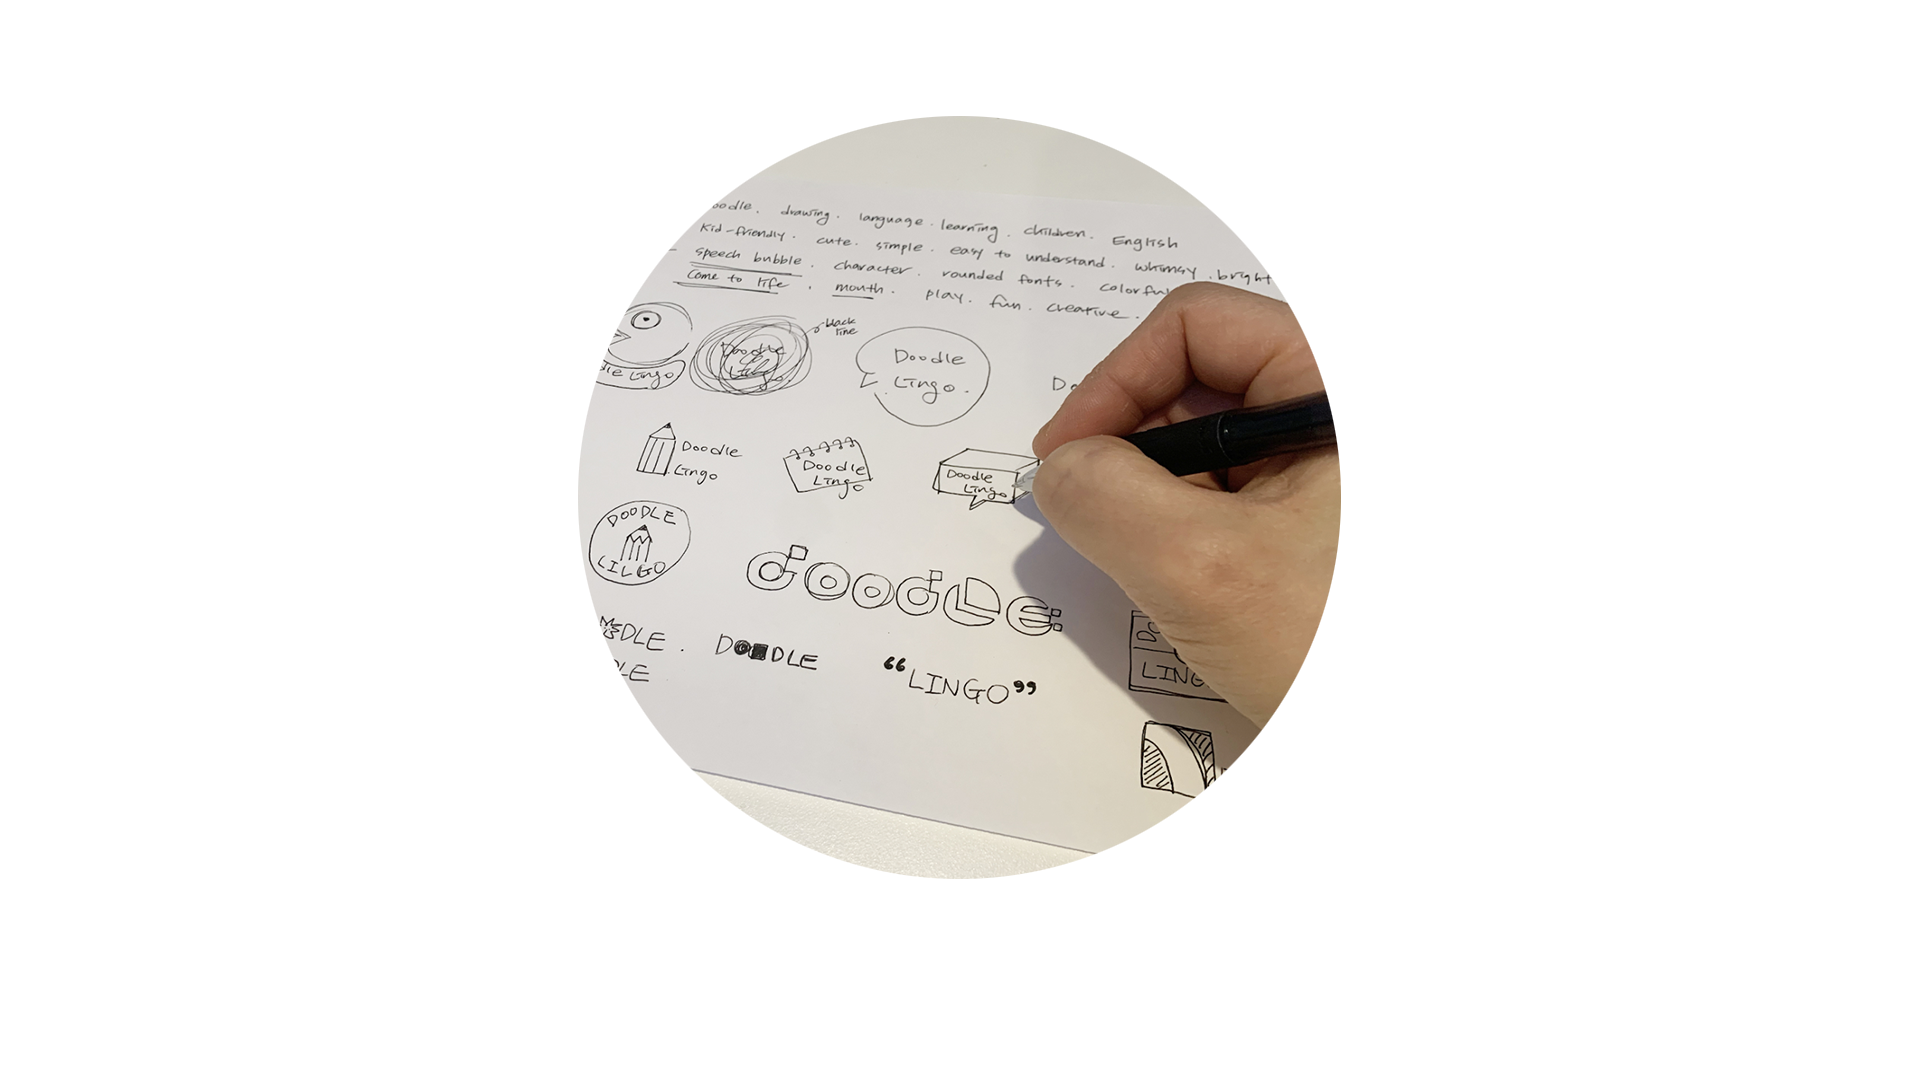 oodle. drawing. language. learning. children. English
Kid-friendly. cute. simple. easy to understand. whimsy. bright
speech bubble. character. rounded fonts. colorful
come to life. mouth. play. fun. creative.
dle Lingo
Doodle
Lingo
black
line
Doodle
Lingo.
Do
Doodle
Lingo
Doodle
Lingo
Doodle
Lingo
DOODLE
LILGO
doodLe
DLE.
DOODLE
“LINGO”
LE
DO
LING